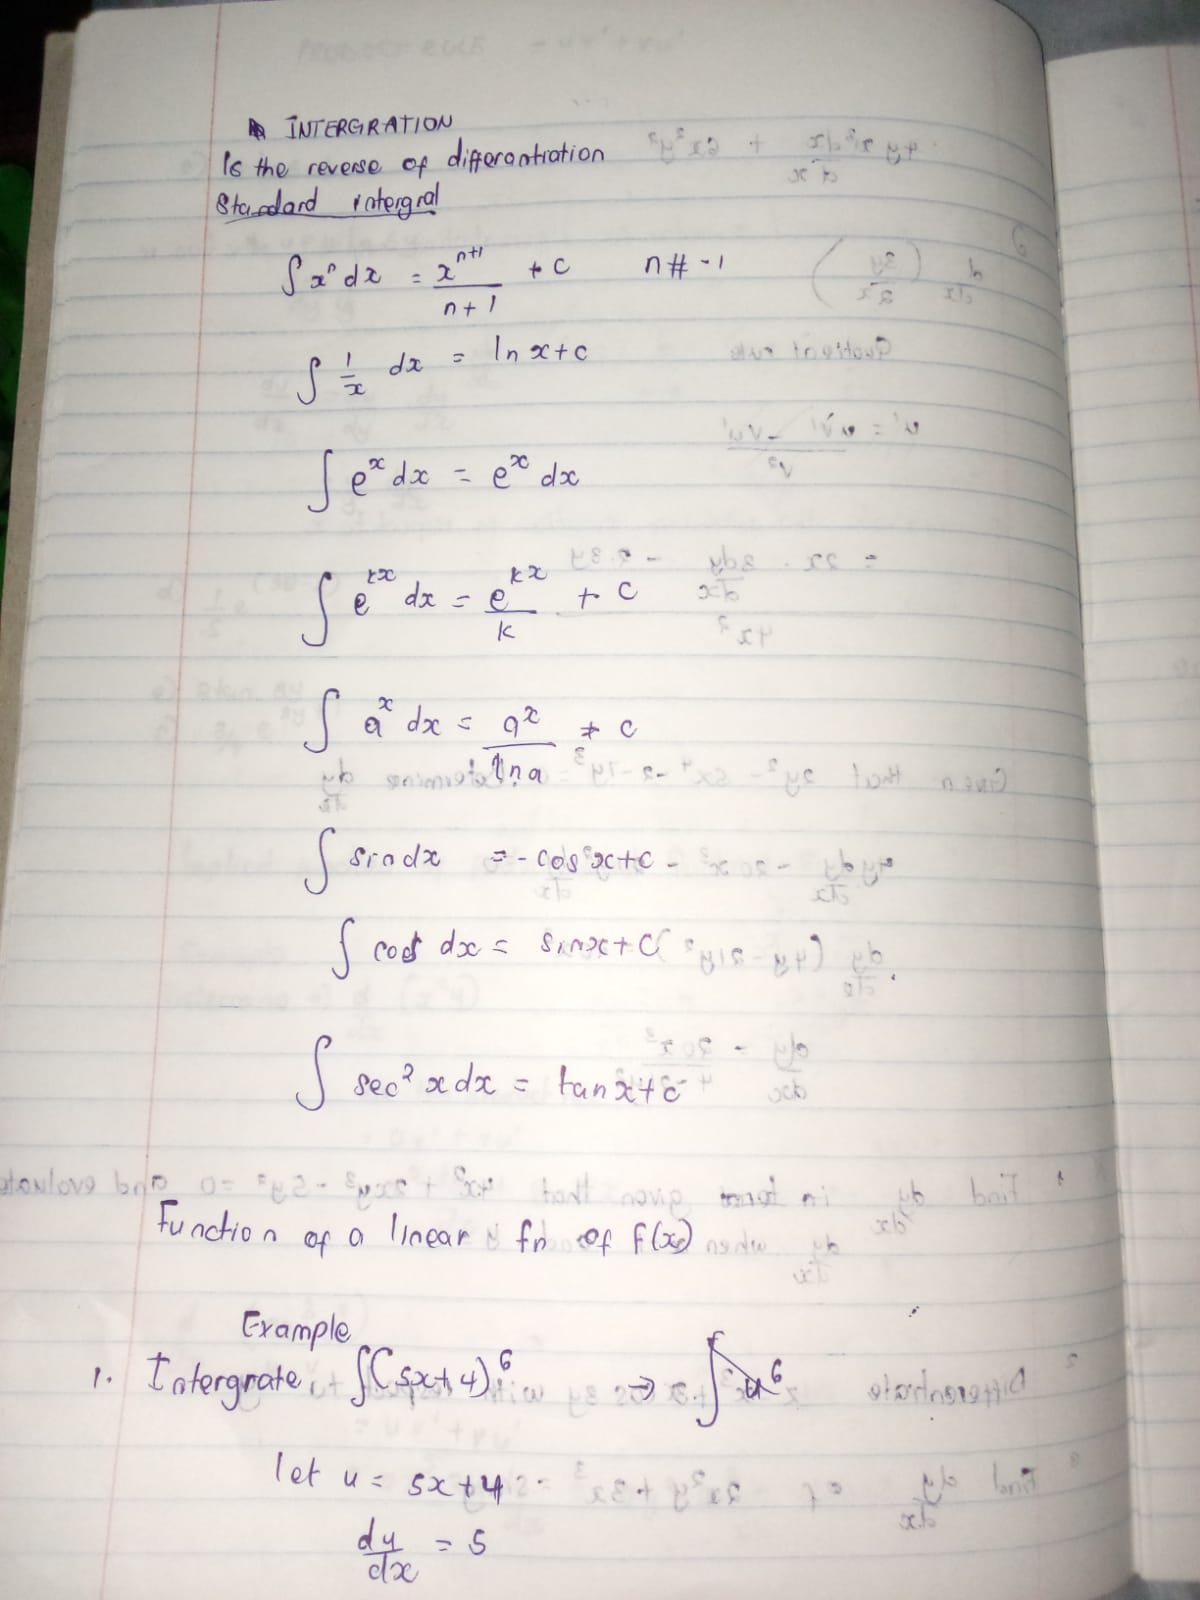 INTERGRATION
Is the reverse of differantiation
Standard intergral
∫ xⁿ dx = xⁿ⁺¹/n+1 + c   n # -1
∫ 1/x dx = ln x+c
∫ eˣ dx = eˣ dx
∫ eᵏˣ dx = eᵏˣ/k + c
∫ aˣ dx = aˣ/ln a + c
∫ sin dx = - cos x+c
∫ cos dx = sinx+c
∫ sec² x dx = tanx+c
Function of a linear fn of f(x)
Example
1. Intergrate ∫(5x+4)⁶ ⇒ ∫ u⁶
let u = 5x+4
du/dx = 5